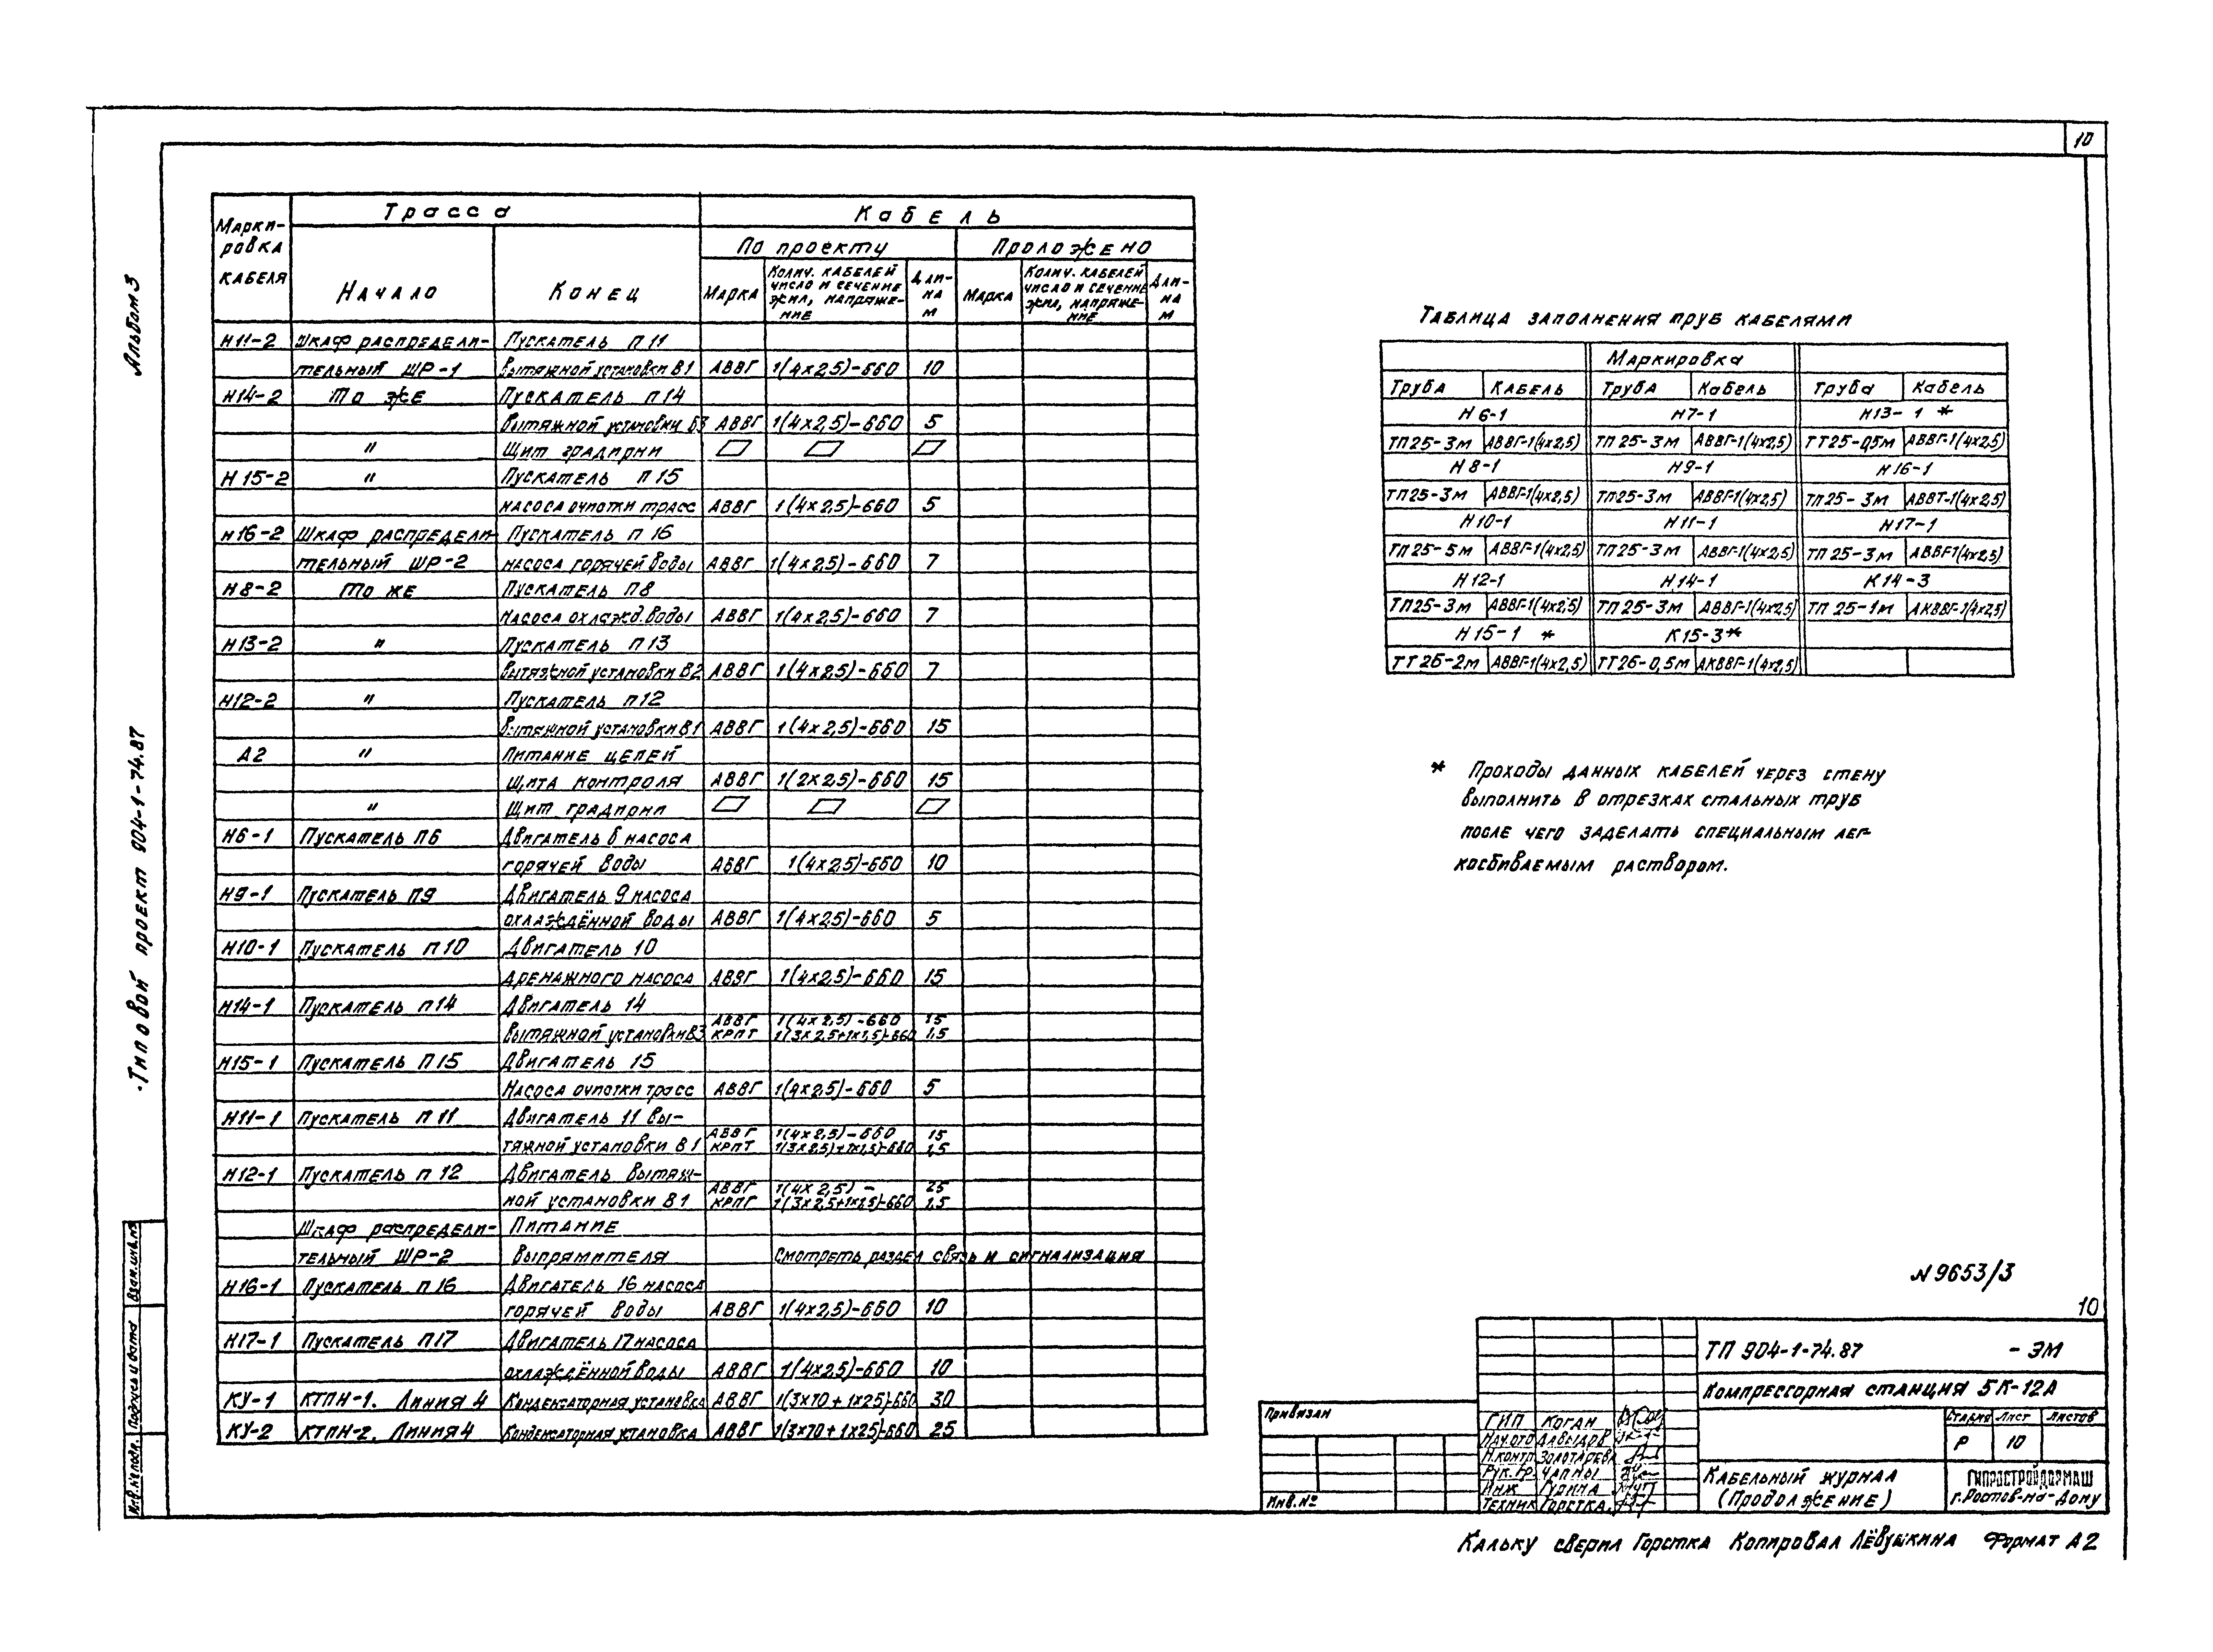 10
Альбом 3
Типовой проект 904-1-74.87
Взам.инв.№
Подпись и дата
Инв.№ подл.
Марки-
ровка
кабеля
Трасса
Кабель
Начало
Конец
По проекту
Проложено
Марка
Колич. кабелей
число и сечение
жил, напряже-
ние
Дли-
на
м
Марка
Колич. кабелей
число и сечение
жил, напряже-
ние
Дли-
на
м
Н11-2 Шкаф распредели- Пускатель П11
тельный ШР-1 вытяжной установки В1 АВВГ 1(4х2,5)-660 10
Н14-2 То же Пускатель П14
вытяжной установки В3 АВВГ 1(4х2,5)-660 5
" Щит градирни
Н15-2 " Пускатель П15
насоса очистки трасс АВВГ 1(4х2,5)-660 5
Н16-2 Шкаф распредели- Пускатель П16
тельный ШР-2 насоса горячей воды АВВГ 1(4х2,5)-660 7
Н8-2 То же Пускатель П8
насоса охлажд.воды АВВГ 1(4х2,5)-660 7
Н13-2 " Пускатель П13
вытяжной установки В2 АВВГ 1(4х2,5)-660 7
Н12-2 " Пускатель П12
вытяжной установки В1 АВВГ 1(4х2,5)-660 15
А2 " Питание цепей
щита контроля АВВГ 1(2х2,5)-660 15
" Щит градирни
Н6-1 Пускатель П6 Двигатель 6 насоса
горячей воды АВВГ 1(4х2,5)-660 10
Н9-1 Пускатель П9 Двигатель 9 насоса
охлаждённой воды АВВГ 1(4х2,5)-660 5
Н10-1 Пускатель П10 Двигатель 10
дренажного насоса АВВГ 1(4х2,5)-660 15
Н14-1 Пускатель П14 Двигатель 14
АВВГ 1(4х2,5)-660 15
вытяжной установки В3 КРПТ 1(3х2,5+1х1,5)-660 1,5
Н15-1 Пускатель П15 Двигатель 15
насоса очистки трасс АВВГ 1(4х2,5)-660 5
Н11-1 Пускатель П11 Двигатель 11 вы-
АВВГ 1(4х2,5)-660 15
тяжной установки В1 КРПТ 1(3х2,5)+1х1,5)-660 1,5
Н12-1 Пускатель П12 Двигатель вытяж-
АВВГ 1(4х2,5)- 25
ной установки В1 КРПТ 1(3х2,5+1х1,5)-660 1,5
Шкаф распредели- Питание
тельный ШР-2 выпрямителя Смотреть раздел связь и сигнализация
Н16-1 Пускатель П16 Двигатель 16 насоса
горячей воды АВВГ 1(4х2,5)-660 10
Н17-1 Пускатель П17 Двигатель 17 насоса
охлаждённой воды АВВГ 1(4х2,5)-660 10
КУ-1 КТПН-1. Линия 4 Конденсаторная установка АВВГ 1(3х70+1х25)-660 30
КУ-2 КТПН-2. Линия 4 Конденсаторная установка АВВГ 1(3х70+1х25)-660 25
Таблица заполнения труб кабелями
Маркировка
Труба Кабель Труба Кабель Труба Кабель
Н6-1 Н7-1 Н13-1 *
ТП25-3м АВВГ-1(4х2,5) ТП25-3м АВВГ-1(4х2,5) ТТ25-0,5м АВВГ-1(4х2,5)
Н8-1 Н9-1 Н16-1
ТП25-3м АВВГ-1(4х2,5) ТП25-3м АВВГ-1(4х2,5) ТП25-3м АВВГ-1(4х2,5)
Н10-1 Н11-1 Н17-1
ТП25-5м АВВГ-1(4х2,5) ТП25-3м АВВГ-1(4х2,5) ТП25-3м АВВГ-1(4х2,5)
Н12-1 Н14-1 К14-3
ТП25-3м АВВГ-1(4х2,5) ТП25-3м АВВГ-1(4х2,5) ТП25-1м АКВВГ-1(4х2,5)
Н15-1 * К15-3*
ТТ26-2м АВВГ-1(4х2,5) ТТ26-0,5м АКВВГ-1(4х2,5)
* Проходы данных кабелей через стену
выполнить в отрезках стальных труб
после чего заделать специальным лег-
косбиваемым раствором.
N 9653/3
10
ТП 904-1-74.87 - ЭМ
Компрессорная станция 5К-12А
Привязан
Инв.№
ГИП Коган
Нач.отд Давыдов
Н.контр. Золотарева
Рук.гр. Чапны
Инж Гурина
Техник Горстка
Стадия Лист Листов
Р 10
Кабельный журнал
(Продолжение)
ГИПРОСТРОЙДОРМАШ
г.Ростов-на-Дону
Кальку сверил Горстка Копировал Лёвушкина Формат А2